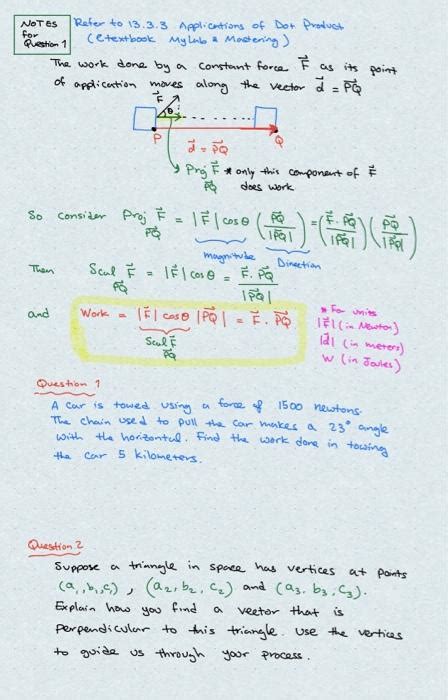 NOTES for Question 1
Refer to 13.3.3 Applications of Dot Product
(etextbook MyLab & Mastering)
The work done by a constant force F⃗ as its point
of application moves along the vector d⃗ = P⃗Q
F⃗
θ
P
Q
d⃗ = P⃗Q
Proj_P⃗Q F⃗ * only this component of F⃗
does work
So consider Proj_P⃗Q F⃗ = |F⃗| cos θ (P⃗Q / |P⃗Q|) = (F⃗ · P⃗Q / |P⃗Q|) (P⃗Q / |P⃗Q|)
magnitude Direction
Then Scal_P⃗Q F⃗ = |F⃗| cos θ = F⃗ · P⃗Q / |P⃗Q|
and Work = |F⃗| cos θ |P⃗Q| = F⃗ · P⃗Q
Scal_P⃗Q F⃗
* For units
|F⃗| (in Newton)
|d⃗| (in meters)
W (in Joules)
Question 1
A car is towed using a force of 1500 newtons.
The chain used to pull the car makes a 23° angle
with the horizontal. Find the work done in towing
the car 5 kilometers.
Question 2
Suppose a triangle in space has vertices at points
(a₁, b₁, c₁), (a₂, b₂, c₂) and (a₃, b₃, c₃).
Explain how you find a vector that is
perpendicular to this triangle. Use the vertices
to guide us through your process.